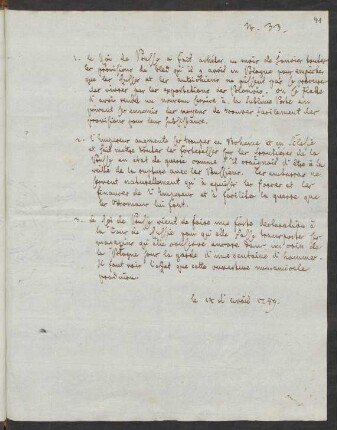 41
N. 33.
1. le Roi de Prusse a fait acheter au mois de Janvier toutes
les provisions de bled qu'il y avoit en Pologne pour empecher
que les Russes et les autrichiens ne puissent par se procurer
des vivres par les exportations des Polonois. on se flatte
d'avoir rendu un nouveau service à la Sublime Porte en
privant ses ennemis des moyens de trouver facilement des
provisions pour leur subsistance.
2. l'Empereur augmente ses troupes en Boheme et en Silesie
et fait mettre toutes les forteresses sur les frontieres de la
Prusse en état de guerre comme s'il craignoit d'être à la
veille de la rupture avec les Prussiens. Ces embarras ne
servent naturellement qu'à epuiser les forces et les
finances de l'Empereur et à faciliter la guerre que
les Ottomans lui font.
3. le Roi de Prusse vient de faire une forte declaration à
la Cour de Russie pour qu'elle fasse transporter les
magazins qu'elle conserve encore dans un coin de
la Pologne sous la garde d'une centaine d'hommes.
Il faut voir l'effet que cette ouverture
produira.
le 15 d'avril 1789.